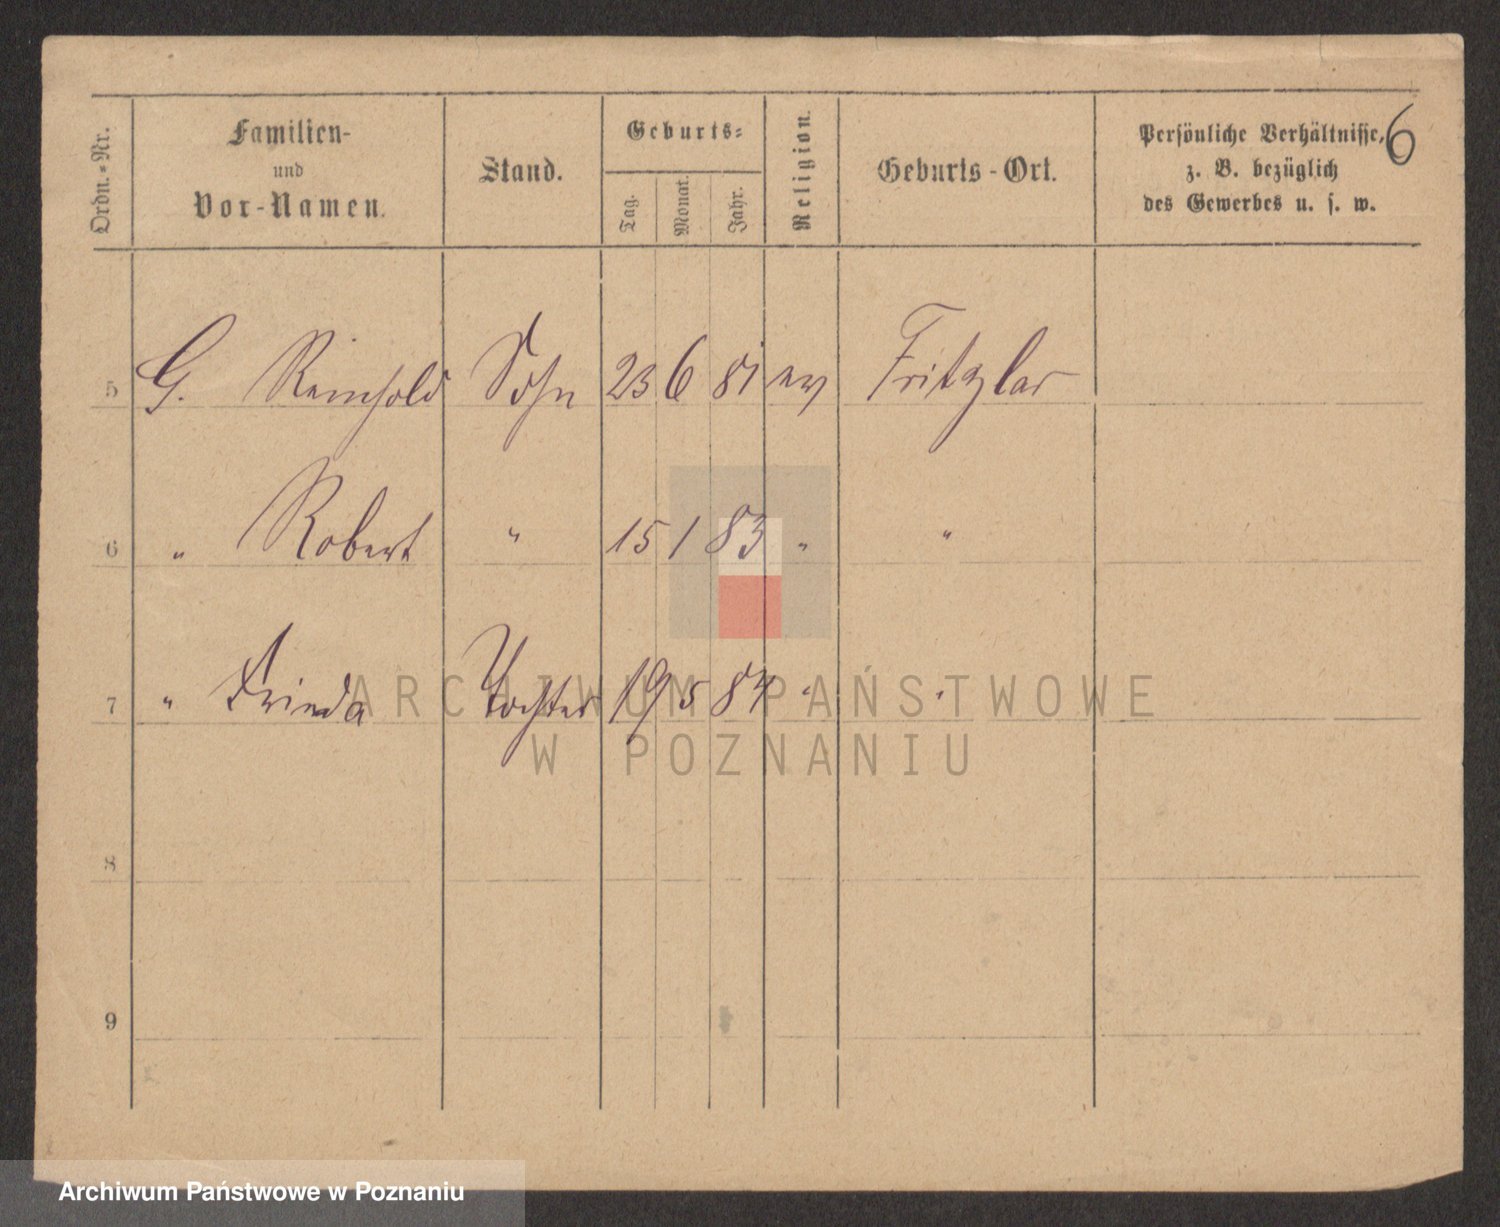 6
Ordn.-Nr. Familien- und Vor-Namen. Stand. Geburts- Tag. Monat. Jahr. Religion. Geburts-Ort. Persönliche Verhältnisse, z. B. bezüglich des Gewerbes u. s. w.
5 G. Reinhold Sohn 23 6 81 ev Fritzlar
6 " Robert " 15 1 83 " "
7 " Frieda Tochter 19 5 84 " "
8
9
ARCHIWUM PAŃSTWOWE
W POZNANIU
Archiwum Państwowe w Poznaniu